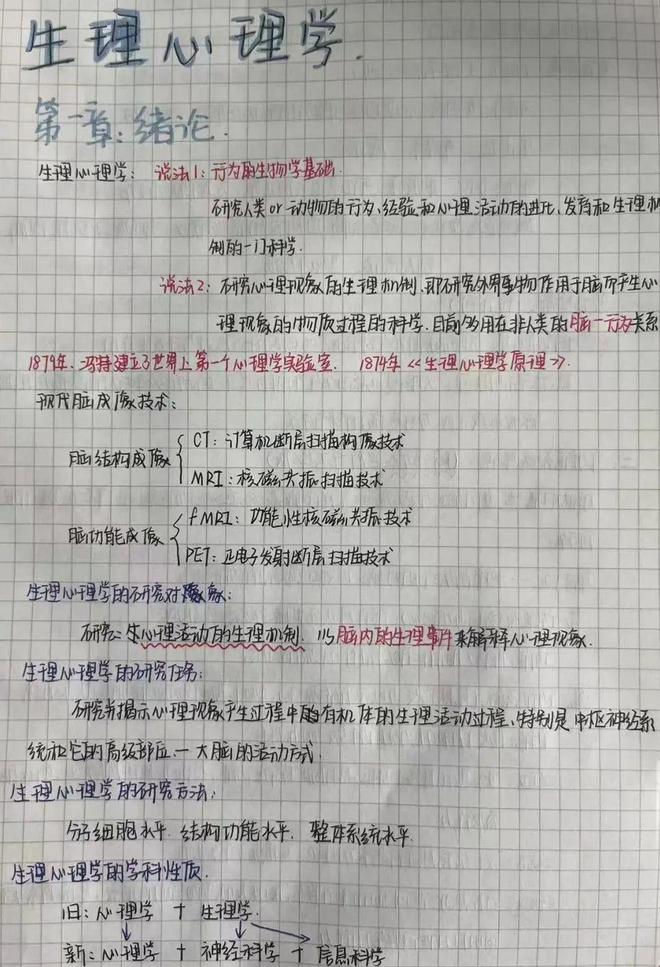 生理心理学.
第一章:绪论.
生理心理学: 说法1:行为的生物学基础.
研究人类or动物的行为、经验和心理活动的进化、发育和生理机
制的一门科学.
说法2:研究心理现象的生理机制,即研究外界事物作用于脑而产生心
理现象的物质过程的科学.目前多用在非人类的脑—行为关系
1879年,冯特建立了世界上第一个心理学实验室. 1874年<<生理心理学原理>>.
现代脑成像技术:
脑结构成像 CT:计算机断层扫描构像技术
MRI:核磁共振扫描技术
脑功能成像 fMRI:功能性核磁共振技术
PET:正电子发射断层扫描技术
生理心理学的研究对象:
研究:心理活动的生理机制. 以脑内的生理事件来解释心理现象.
生理心理学的研究任务:
研究并揭示心理现象产生过程中的有机体的生理活动过程,特别是中枢神经系
统和它的高级部位—大脑的活动方式.
生理心理学的研究方法:
分子细胞水平. 结构功能水平. 整体系统水平.
生理心理学的学科性质.
旧:心理学 + 生理学.
新:心理学 + 神经科学 + 信息科学